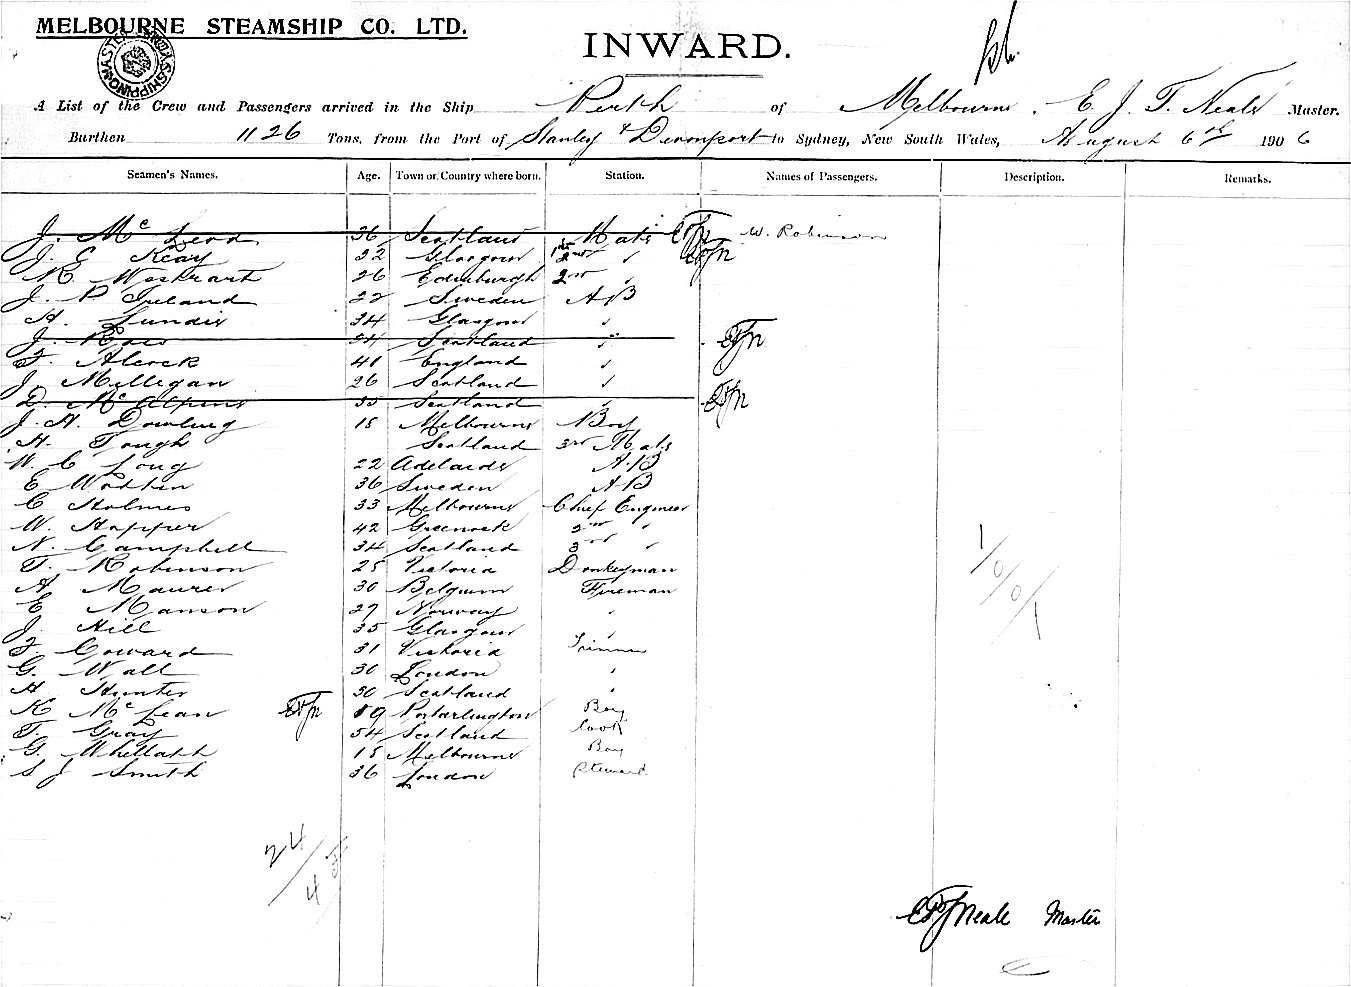 MELBOURNE STEAMSHIP CO. LTD.
INWARD.
SHIPPING MASTER
A List of the Crew and Passengers arrived in the Ship Perth of Melbourne, E. J. T. Neale Master.
Burthen 1126 Tons, from the Port of Stanley & Devonport to Sydney, New South Wales, August 6th 1906
Seamen's Names. Age. Town or Country where born. Station. Names of Passengers. Description. Remarks.
J. McLeod 36 Scotland Mate W. Robinson
J. E. Keay 32 Glasgow "
R. 26 Edinburgh 2nd "
J. P. Ireland 22 Sweden AB
A. Lundie 34 Glasgow "
J. Ross 54 Scotland "
F. Alcock 41 England "
J. Milligan 26 Scotland "
D. McAlpine 35 Scotland "
J. H. Dowling 18 Melbourne Boy
H. Tough Scotland 3rd Mate
W. C. Long 22 Adelaide A.B
E. 36 Sweden AB
C. Holmes 33 Melbourne Chief Engineer
W. Hopper 42 Greenock 2nd "
N. Campbell 34 Scotland 3rd "
T. Robinson 25 Victoria Donkeyman
A. Maurer 30 Belgium Fireman
E. Manson 27 Norway "
J. Hill 35 Glasgow "
F. Coward 31 Victoria Trimmer
G. Wall 30 London "
H. Hunter 30 Scotland "
K. McLean 19 Portarlington Boy
T. Gray 54 Scotland Cook
G. 18 Melbourne Boy
S J Smith 36 London Steward
1/0/0/1
24/4
Neale Master